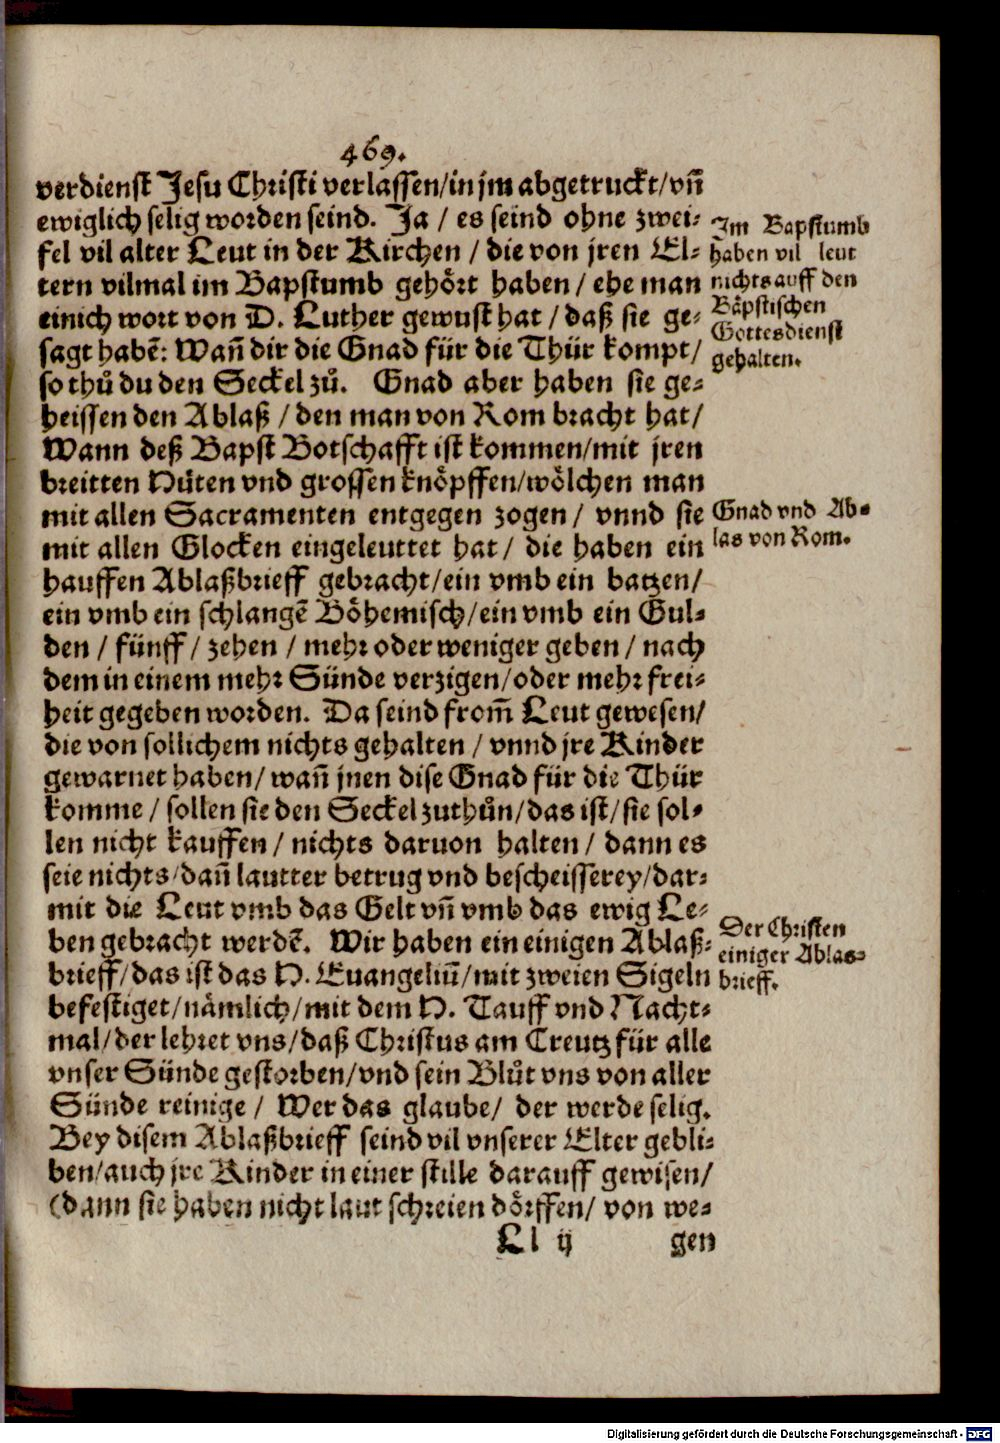 469.
verdienst Jesu Christi verlassen/in jm abgetruckt/vñ
ewiglich selig worden seind. Ja / es seind ohne zwei-
fel vil alter Leut in der Kirchen / die von jren El-
tern vilmal im Bapstumb gehört haben/ ehe man
einich wort von D. Luther gewust hat / daß sie ge-
sagt habẽ: Wañ dir die Gnad für die Thür kompt/
so thů du den Seckel zů. Gnad aber haben sie ge-
heissen den Ablaß / den man von Rom bracht hat/
Wann deß Bapst Botschafft ist kommen/mit jren
breitten Hüten vnd grossen knöpffen/wölchen man
mit allen Sacramenten entgegen zogen / vnnd sie
mit allen Glocken eingeleuttet hat / die haben ein
hauffen Ablaßbrieff gebracht/ein vmb ein batzen/
ein vmb ein schlangẽ Böhemisch/ein vmb ein Gul-
den / fünff / zehen / mehr oder weniger geben / nach
dem in einem mehr Sünde verzigen/oder mehr frei-
heit gegeben worden. Da seind from̃ Leut gewesen/
die von sollichem nichts gehalten / vnnd jre Kinder
gewarnet haben/ wañ jnen dise Gnad für die Thür
komme / sollen sie den Seckel zuthůn/das ist/sie sol-
len nicht kauffen / nichts daruon halten / dann es
seie nichts/dañ lautter betrug vnd bescheisserey/dar-
mit die Leut vmb das Gelt vñ vmb das ewig Le-
ben gebracht werdẽ. Wir haben ein einigen Ablaß-
brieff/das ist das H. Euangeliũ/mit zweien Sigeln
befestiget/nämlich/mit dem H. Tauff vnd Nacht-
mal/der lehret vns/daß Christus am Creutz für alle
vnser Sünde gestorben/vnd sein Blůt vns von aller
Sünde reinige / Wer das glaube/ der werde selig.
Bey disem Ablaßbrieff seind vil vnserer Elter gebli-
ben/auch jre Kinder in einer stille darauff gewisen/
(dann sie haben nicht laut schreien dörffen/ von we-
Ll ij gen
Im Bapstumb
haben vil leut
nichts auff den
Bäpstischen
Gottesdienst
gehalten.
Gnad vnd Ab-
las von Rom.
Der Christen
einiger Ablas-
brieff.
Digitalisierung gefördert durch die Deutsche Forschungsgemeinschaft - DFG